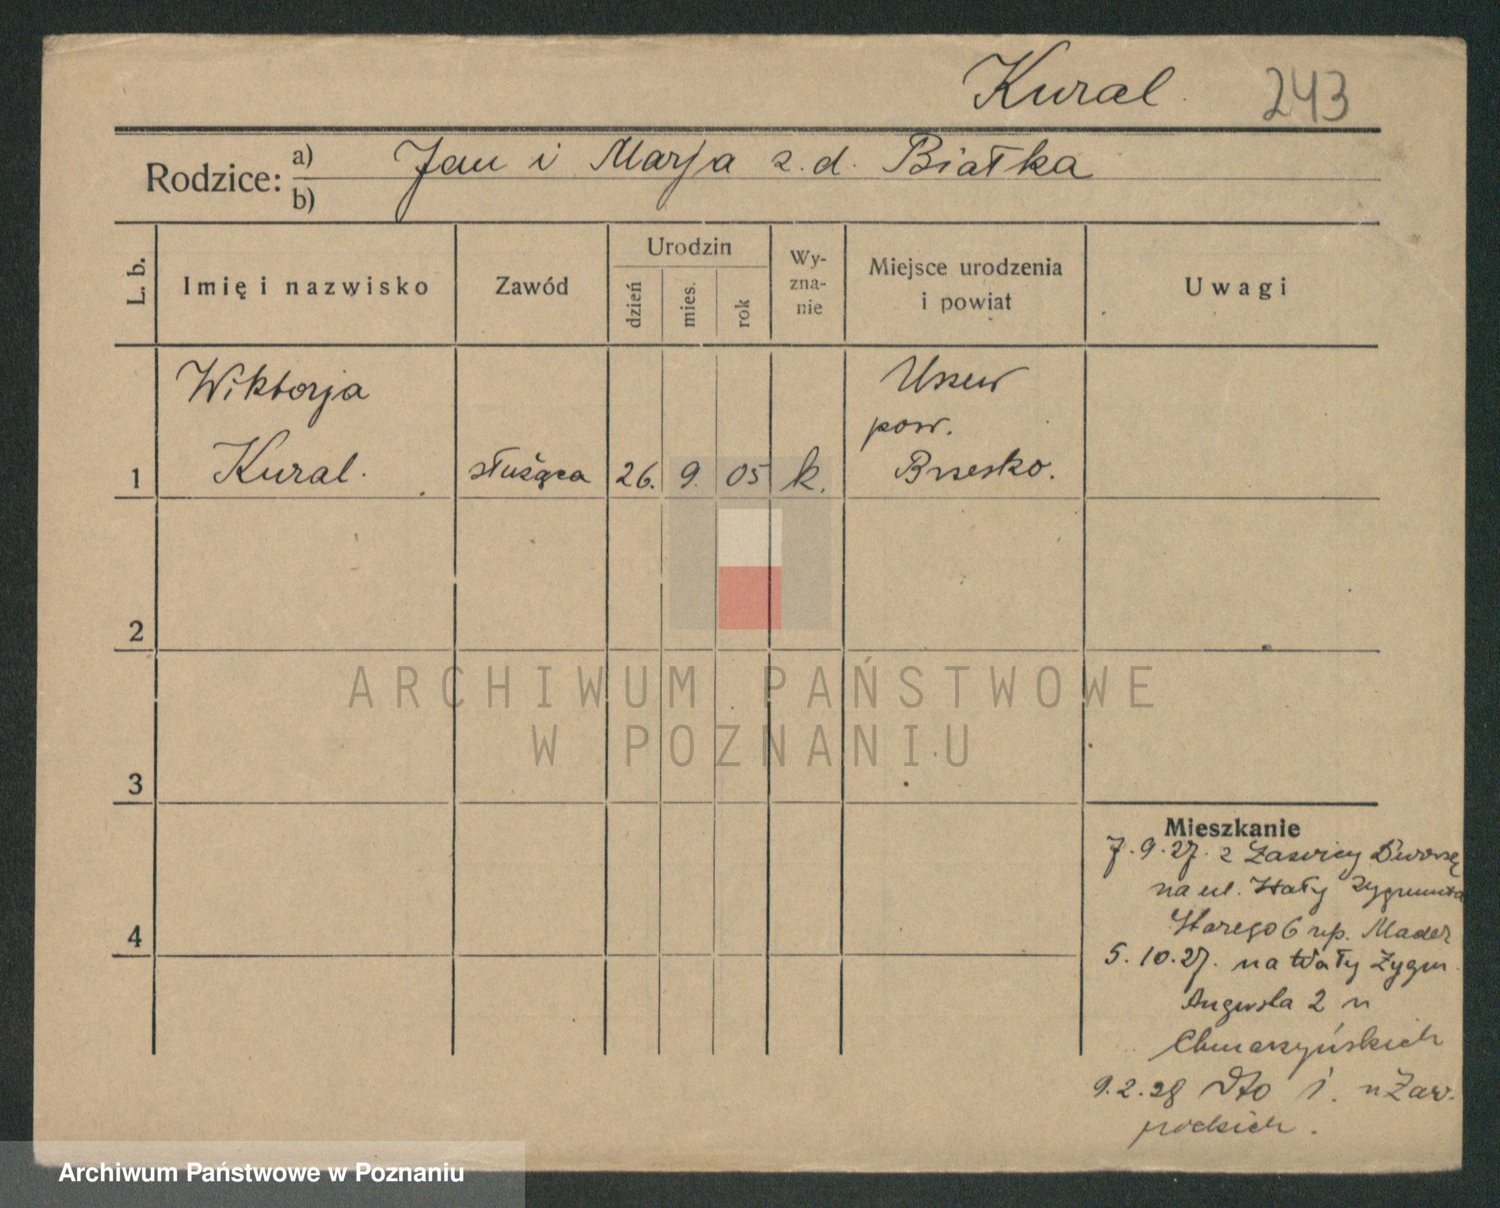 Kural 243
Rodzice: a) Jan i Marja z.d. Białka
b)
L. b. Imię i nazwisko Zawód Urodzin dzień mies. rok Wy-zna-nie Miejsce urodzenia i powiat Uwagi
Wiktorja Uszew
pow.
1 Kural. służąca 26. 9. 05 k. Brzesko.
2
3
4
Mieszkanie
7.9.27. z
na ul. Wały Zygmunta
Starego 6 np. Mader
5.10.27. na Wały Zygm.
Augusta 2 u
Chmarzyńskich
9.2.28 Dto 1. u Zaw-
ARCHIWUM PAŃSTWOWE
W POZNANIU
Archiwum Państwowe w Poznaniu